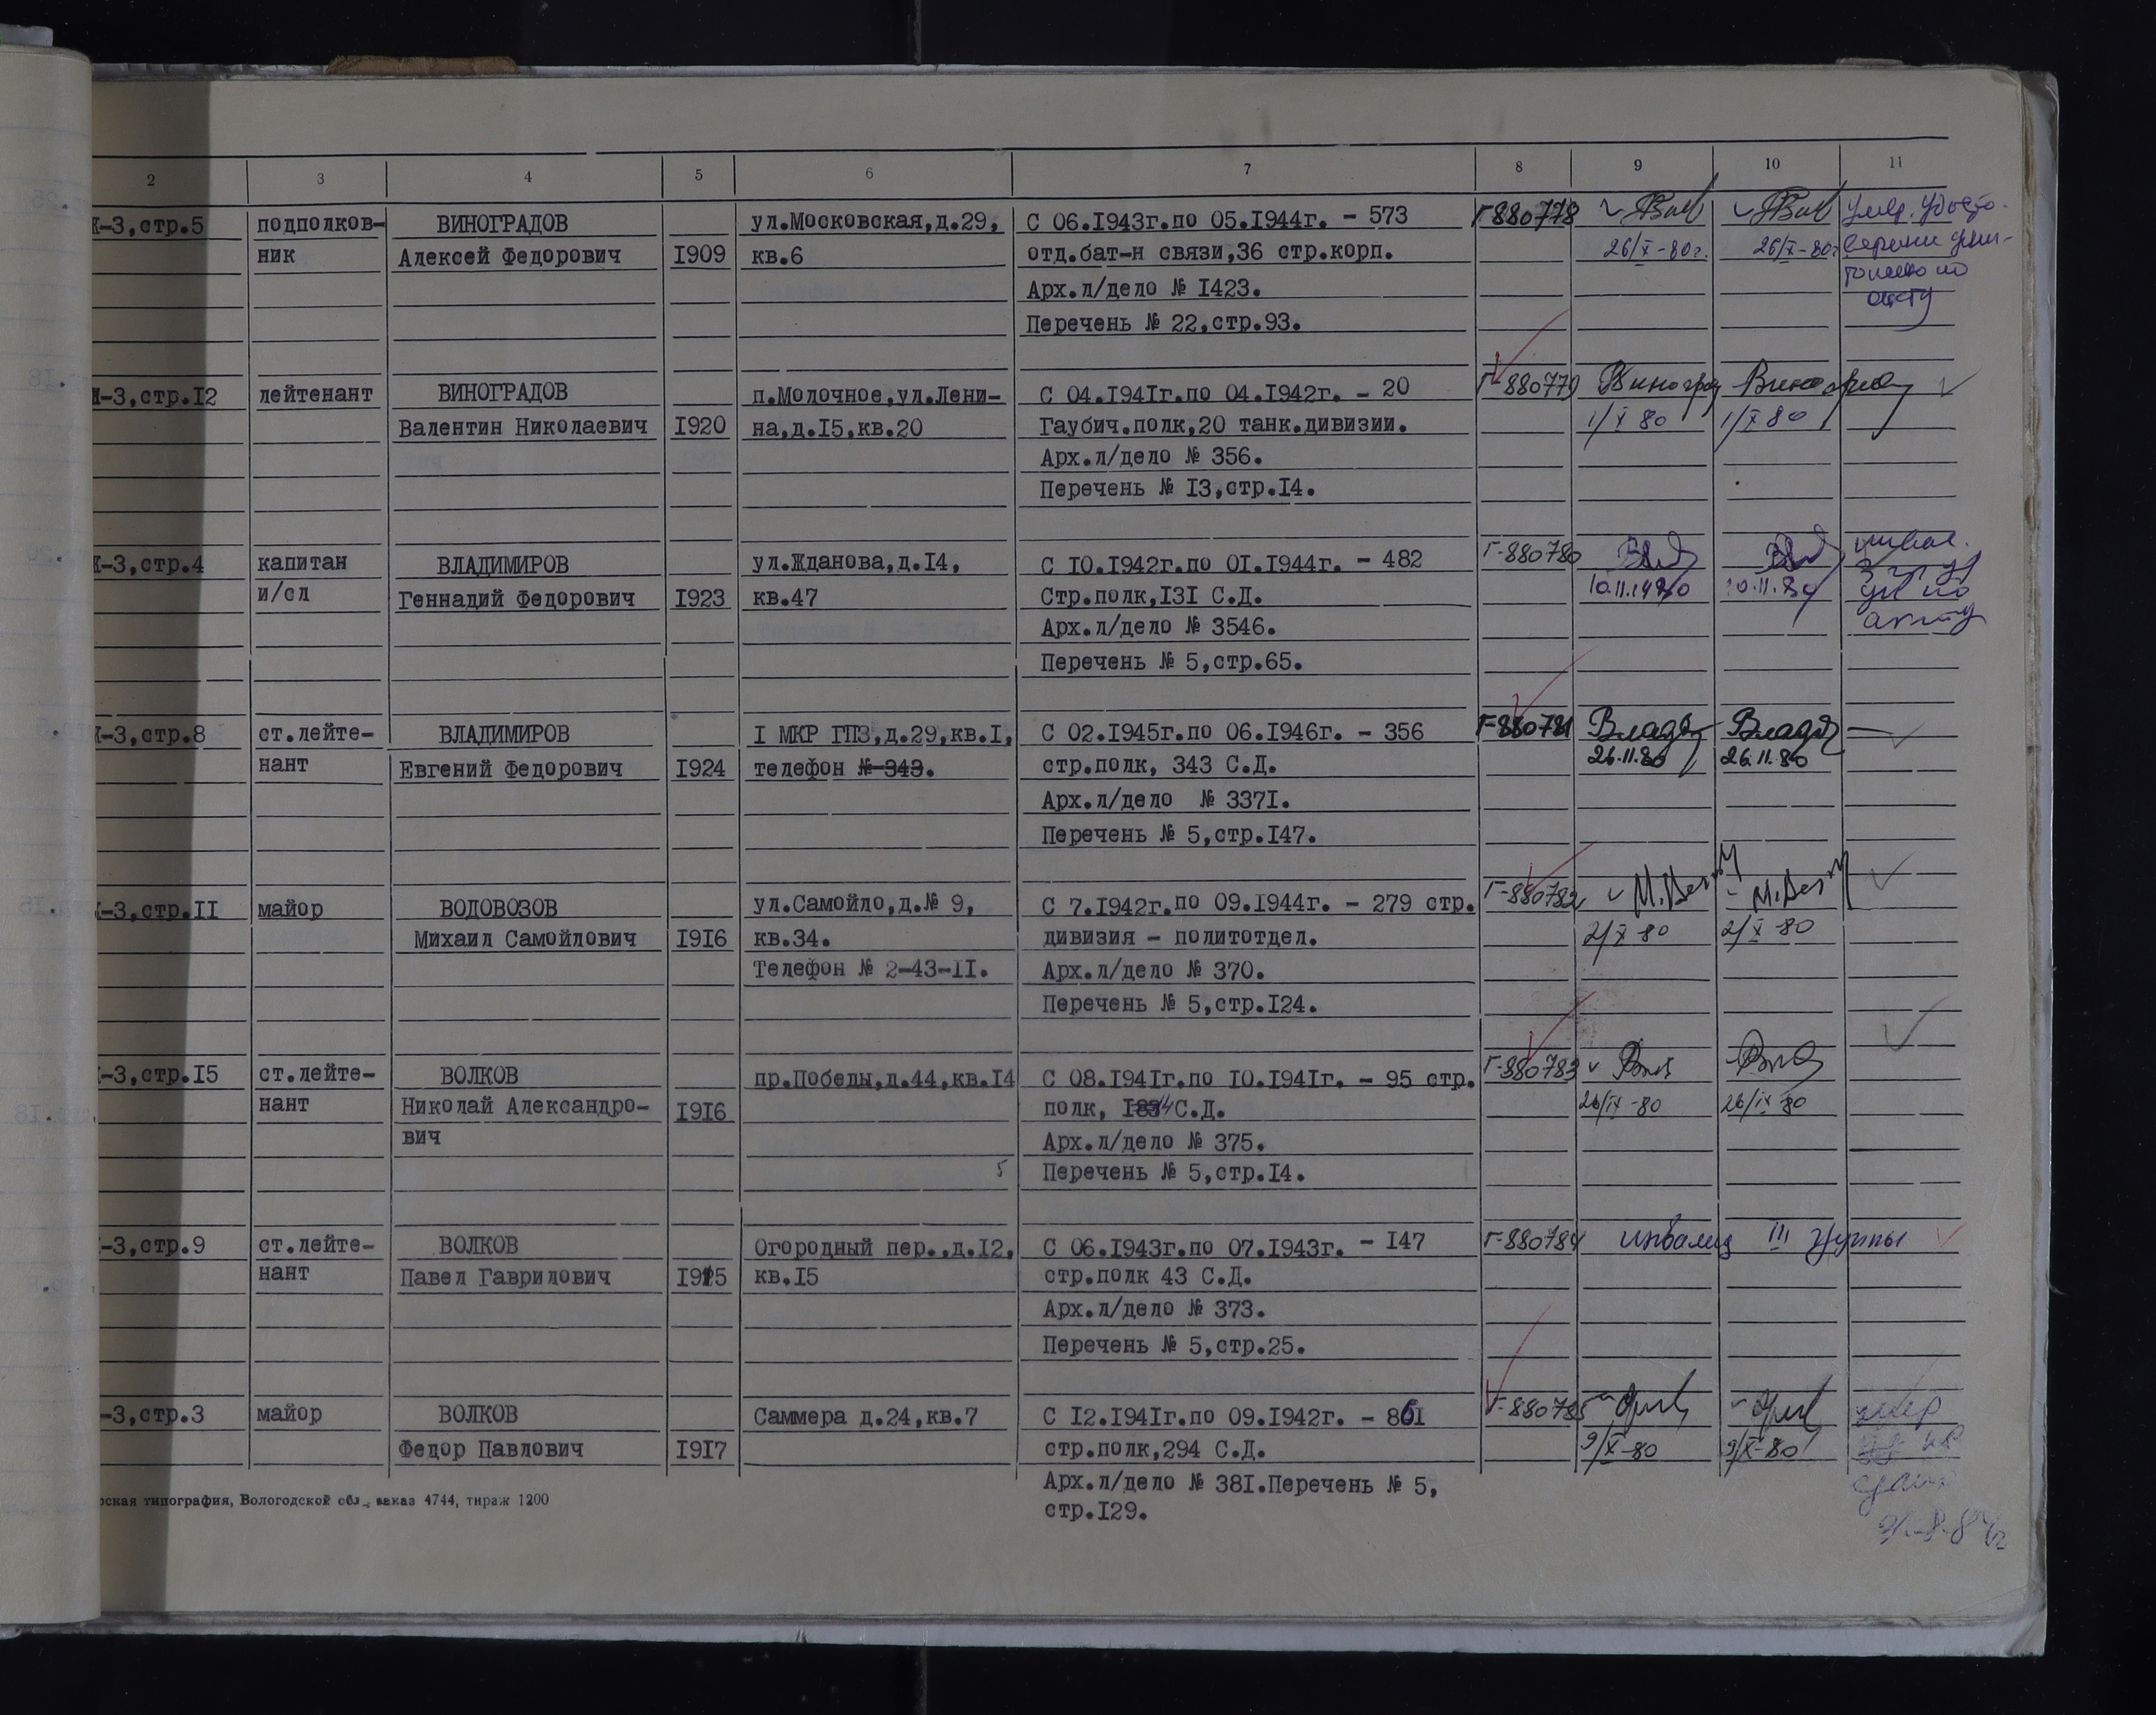 2 3 4 5 6 7 8 9 10 11
К-3,стр.5 подполков- ВИНОГРАДОВ ул.Московская,д.29, С 06.1943г.по 05.1944г. - 573 Г-880778
ник Алексей Федорович 1909 кв.6 отд.бат-н связи,36 стр.корп. 26/X-80г. 26/X-80г.
Арх.л/дело № 1423.
акту
Перечень № 22,стр.93.
К-3,стр.12 лейтенант ВИНОГРАДОВ п.Молочное,ул.Лени- С 04.1941г.по 04.1942г. - 20 Г-880779 Виноград
Валентин Николаевич 1920 на,д.15,кв.20 Гаубич.полк,20 танк.дивизии. 1/X 80 1/X 80
Арх.л/дело № 356.
Перечень № 13,стр.14.
К-3,стр.4 капитан ВЛАДИМИРОВ ул.Жданова,д.14, С 10.1942г.по 01.1944г. - 482 Г-880780 инвал.
и/сл Геннадий Федорович 1923 кв.47 Стр.полк,131 С.Д. 10.11.1980 10.11.80
Арх.л/дело № 3546. акту
Перечень № 5,стр.65.
К-3,стр.8 ст.лейте- ВЛАДИМИРОВ 1 МКР ГПЗ,д.29,кв.1, С 02.1945г.по 06.1946г. - 356 Г-880781
нант Евгений Федорович 1924 телефон № 343. стр.полк, 343 С.Д. 26.11.80 26.11.80
Арх.л/дело № 3371.
Перечень № 5,стр.147.
-3,стр.11 майор ВОДОВОЗОВ ул.Самойло,д.№ 9, С 7.1942г.по 09.1944г. - 279 стр. Г-880782
Михаил Самойлович 1916 кв.34. дивизия - политотдел. 2/X-80 2/X-80
Телефон № 2-43-11. Арх.л/дело № 370.
Перечень № 5,стр.124.
-3,стр.15 ст.лейте- ВОЛКОВ пр.Победы,д.44,кв.14 С 08.1941г.по 10.1941г. - 95 стр. Г-880783
нант Николай Александро- 1916 полк, С.Д. 26/IX-80 26/IX-80
вич Арх.л/дело № 375.
Перечень № 5,стр.14.
-3,стр.9 ст.лейте- ВОЛКОВ Огородный пер.,д.12, С 06.1943г.по 07.1943г. - 147 Г-880784 инвалид III группы
нант Павел Гаврилович кв.15 стр.полк 43 С.Д.
Арх.л/дело № 373.
Перечень № 5,стр.25.
-3,стр.3 майор ВОЛКОВ Саммера д.24,кв.7 С 12.1941г.по 09.1942г. - 861 Г-880785 умер
Федор Павлович 1917 стр.полк,294 С.Д. 9/X-80 9/X-80
Арх.л/дело № 381.Перечень № 5,
стр.129.
рская типография, Вологодской обл., заказ 4744, тираж 1200